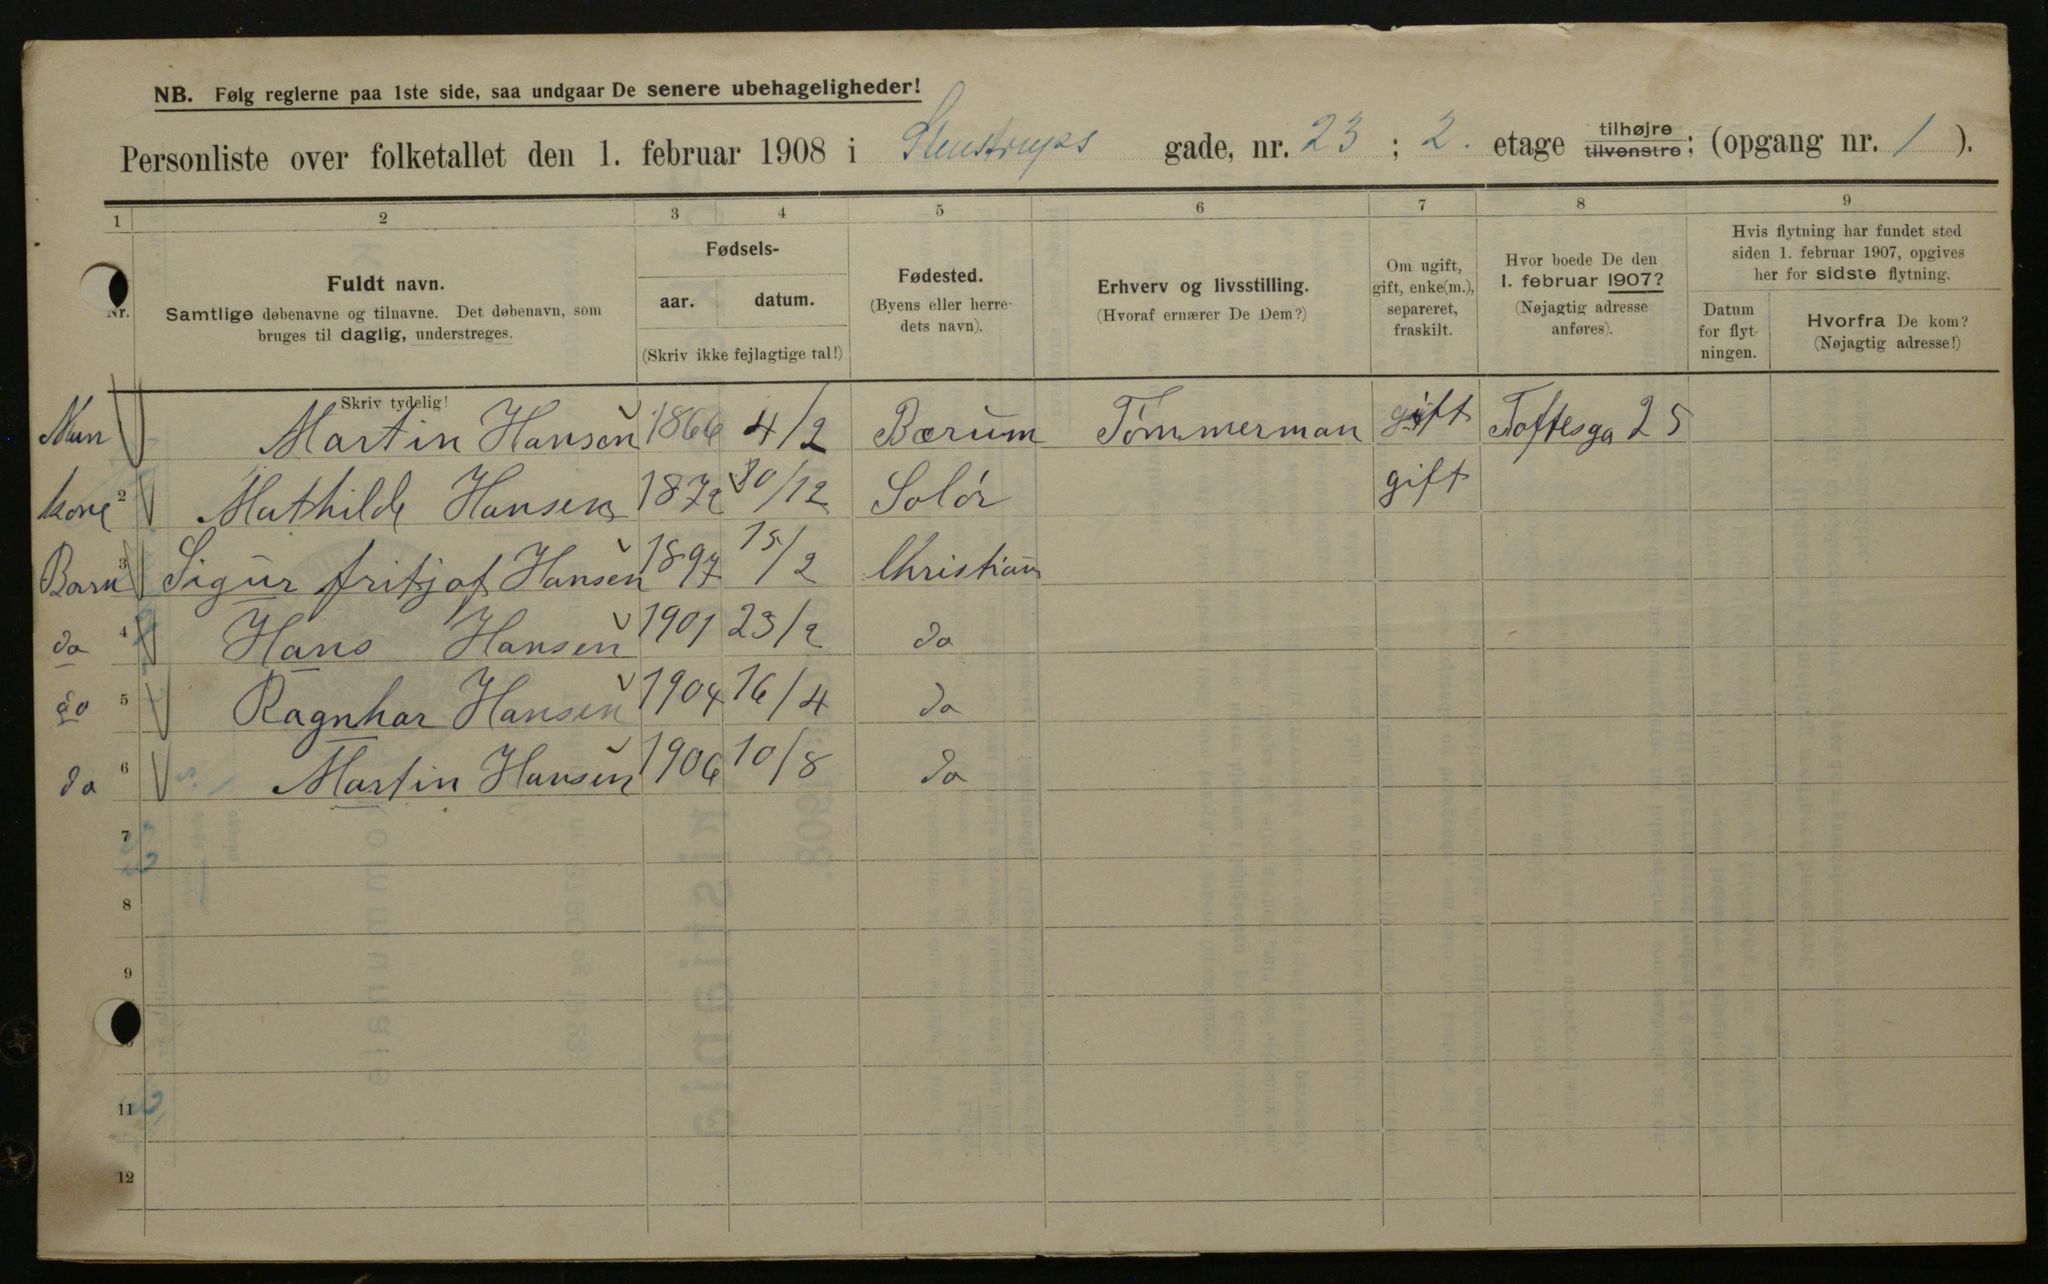 NB. Følg reglerne paa 1ste side, saa undgaar De senere ubehageligheder!
Personliste over folketallet den 1. februar 1908 i Stenstrups gade, nr. 23 ; 2. etage tilhøjre tilvenstre; (opgang nr. 1 ).
1 2 3 4 5 6 7 8 9
Nr.
Fuldt navn.
Samtlige døbenavne og tilnavne. Det døbenavn, som
bruges til daglig, understreges.
Skriv tydelig!
Fødsels-
aar. datum.
(Skriv ikke fejlagtige tal!)
Fødested.
(Byens eller herre-
dets navn).
Erhverv og livsstilling.
(Hvoraf ernærer De Dem?)
Om ugift,
gift, enke(m.),
separeret,
fraskilt.
Hvor boede De den
1. februar 1907?
(Nøjagtig adresse
anføres).
Hvis flytning har fundet sted
siden 1. februar 1907, opgives
her for sidste flytning.
Datum
for flyt-
ningen.
Hvorfra De kom?
(Nøjagtig adresse!)
Man Martin Hansen 1866 4/2 Bærum Tømmerman gift Toftesga 25
kone 2 Mathilde Hansen 1872 30/12 Solør gift
Barn 3 Sigur fritjof Hansen 1897 15/2 Christian
do 4 Hans Hansen 1901 23/2 do
do 5 Ragnhar Hansen 1904 16/4 do
do 6 Martin Hansen 1906 10/8 do
7
8
9
11
12